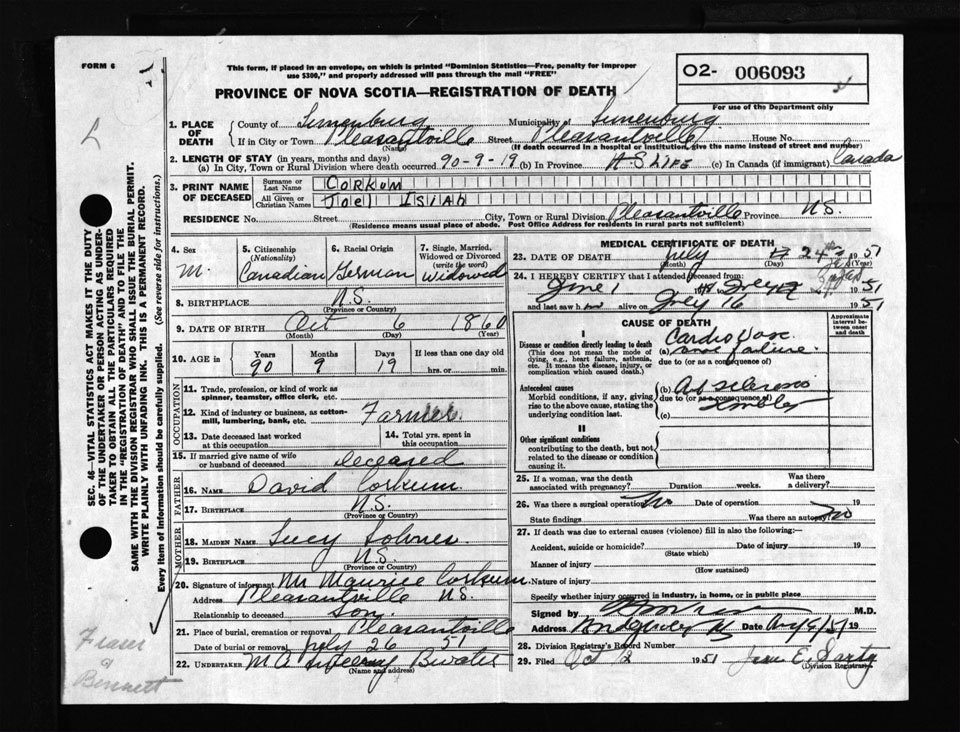 FORM 6
This form, if placed in an envelope, on which is printed "Dominion Statistics—Free, penalty for improper
use $300," and properly addressed will pass through the mail "FREE"
O2- 006093
For use of the Department only
PROVINCE OF NOVA SCOTIA—REGISTRATION OF DEATH
L
1. PLACE OF DEATH
County of Lunenburg Municipality of Lunenburg
If in City or Town Pleasantville Street Pleasantville House No.
(Name) (If death occurred in a hospital or institution, give the name instead of street and number)
2. LENGTH OF STAY (in years, months and days)
(a) In City, Town or Rural Division where death occurred 90-9-19 (b) In Province (c) In Canada (if immigrant) Canada
3. PRINT NAME OF DECEASED
Surname or Last Name CORKUM
All Given or Christian Names JOEL ISIAH
RESIDENCE No. Street City, Town or Rural Division Pleasantville Province N.S.
(Residence means usual place of abode. Post Office Address for residents in rural parts not sufficient)
4. Sex M.
5. Citizenship (Nationality) Canadian
6. Racial Origin German
7. Single, Married, Widowed or Divorced (write the word) Widowed
8. BIRTHPLACE N.S.
(Province or Country)
9. DATE OF BIRTH Oct 6 1860
(Month) (Day) (Year)
10. AGE in Years 90 Months 9 Days 19 If less than one day old
hrs. or min.
OCCUPATION
11. Trade, profession, or kind of work as
spinner, teamster, office clerk, etc.
12. Kind of industry or business, as cotton-
mill, lumbering, bank, etc. Farmer
13. Date deceased last worked
at this occupation
14. Total yrs. spent in
this occupation
15. If married give name of wife
or husband of deceased Deceased
FATHER
16. NAME David Corkum
17. BIRTHPLACE N.S.
(Province or Country)
MOTHER
18. MAIDEN NAME Lucy
19. BIRTHPLACE N.S.
(Province or Country)
20. Signature of informant Mr Maurice Corkum
Address Pleasantville N.S.
Relationship to deceased Son
21. Place of burial, cremation or removal Pleasantville
Date of burial or removal July 26 51
22. UNDERTAKER Bwater
(Name and address)
MEDICAL CERTIFICATE OF DEATH
23. DATE OF DEATH July 24th 1951
(Month) (Day)
24. I HEREBY CERTIFY that I attended deceased from:
June 1 1951
and last saw h alive on July 16 1951
CAUSE OF DEATH
Approximate interval between onset and death
I
Disease or condition directly leading to death
(This does not mean the mode of
dying, e.g., heart failure, asthenia,
etc. It means the disease, injury, or
complication which caused death.)
(a) Cardio Vasc
failure
due to (or as a consequence of)
Antecedent causes
Morbid conditions, if any, giving
rise to the above cause, stating the
underlying condition last.
(b)
due to (or as a consequence of)
(c)
II
Other significant conditions
contributing to the death, but not
related to the disease or condition
causing it.
25. If a woman, was the death
associated with pregnancy? Duration weeks. Was there
a delivery?
26. Was there a surgical operation? No Date of operation 19
State findings Was there an autopsy? No
27. If death was due to external causes (violence) fill in also the following:—
Accident, suicide or homicide? Date of injury 19
(State which)
Manner of injury
(How sustained)
Nature of injury
Specify whether injury occurred in industry, in home, or in public place
Signed by M.D.
Address Bridgewater Date 19
28. Division Registrar's Record Number
29. Filed Oct 2 1951
(Division Registrar)
SEC. 46—VITAL STATISTICS ACT MAKES IT THE DUTY
OF THE UNDERTAKER OR PERSON ACTING AS UNDER-
TAKER TO OBTAIN ALL THE PARTICULARS REQUIRED
IN THE "REGISTRATION OF DEATH" AND TO FILE THE
SAME WITH THE DIVISION REGISTRAR WHO SHALL ISSUE THE BURIAL PERMIT.
WRITE PLAINLY WITH UNFADING INK. THIS IS A PERMANENT RECORD.
Every item of Information should be carefully supplied. (See reverse side for instructions.)
Fraser
Bennett